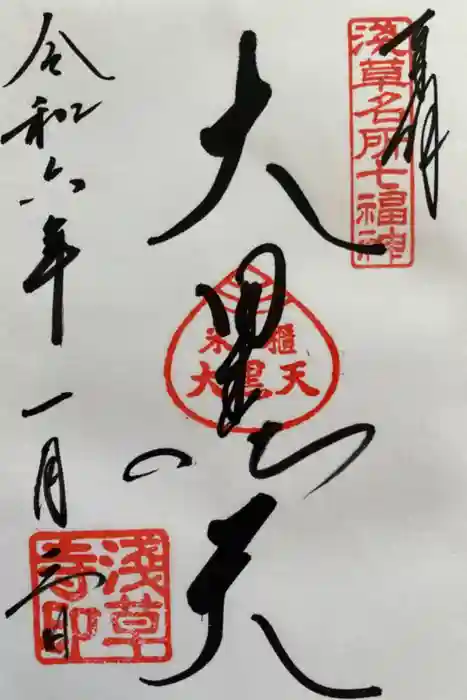 奉拝
淺草名所七福神
大黒天
米櫃
大黒天
令和六年一月二日
淺草寺印